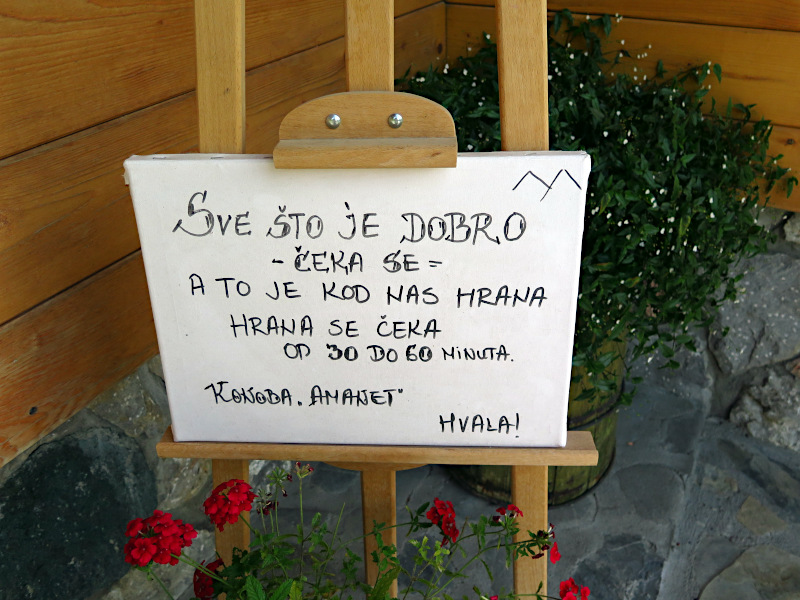 SVE ŠTO JE DOBRO
- ČEKA SE =
A TO JE KOD NAS HRANA
HRANA SE ČEKA
OD 30 DO 60 MINUTA.
KONOBA „AMANET"
HVALA!